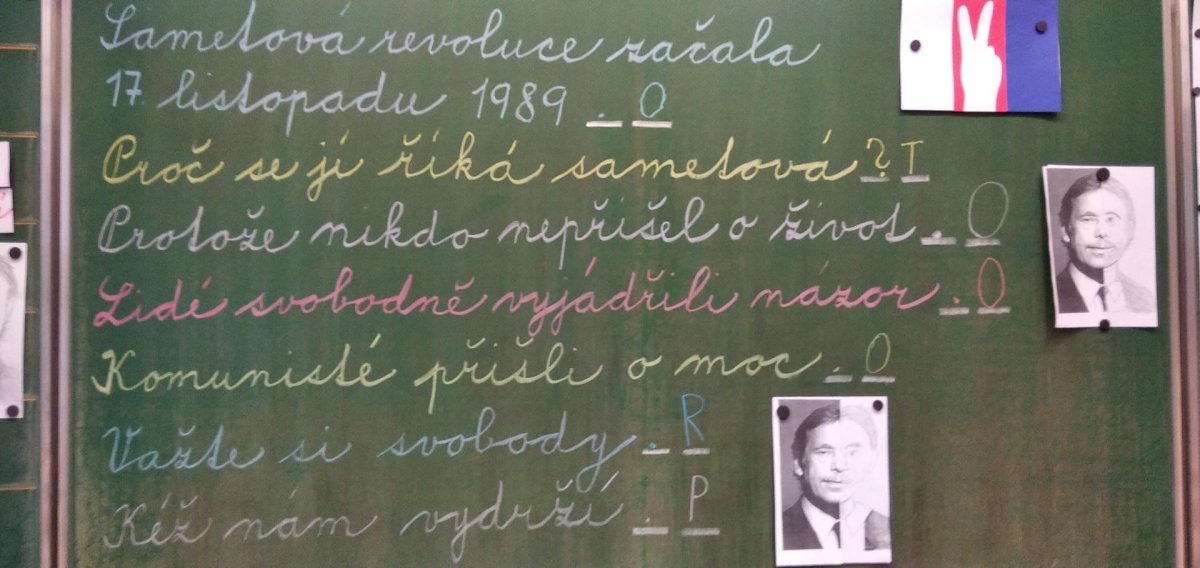 Sametová revoluce začala
17. listopadu 1989 . O
Proč se jí říká sametová ? T
Protože nikdo nepřišel o život . O
Lidé svobodně vyjádřili názor . O
Komunisté přišli o moc . O
Važte si svobody . R
Kéž nám vydrží . P